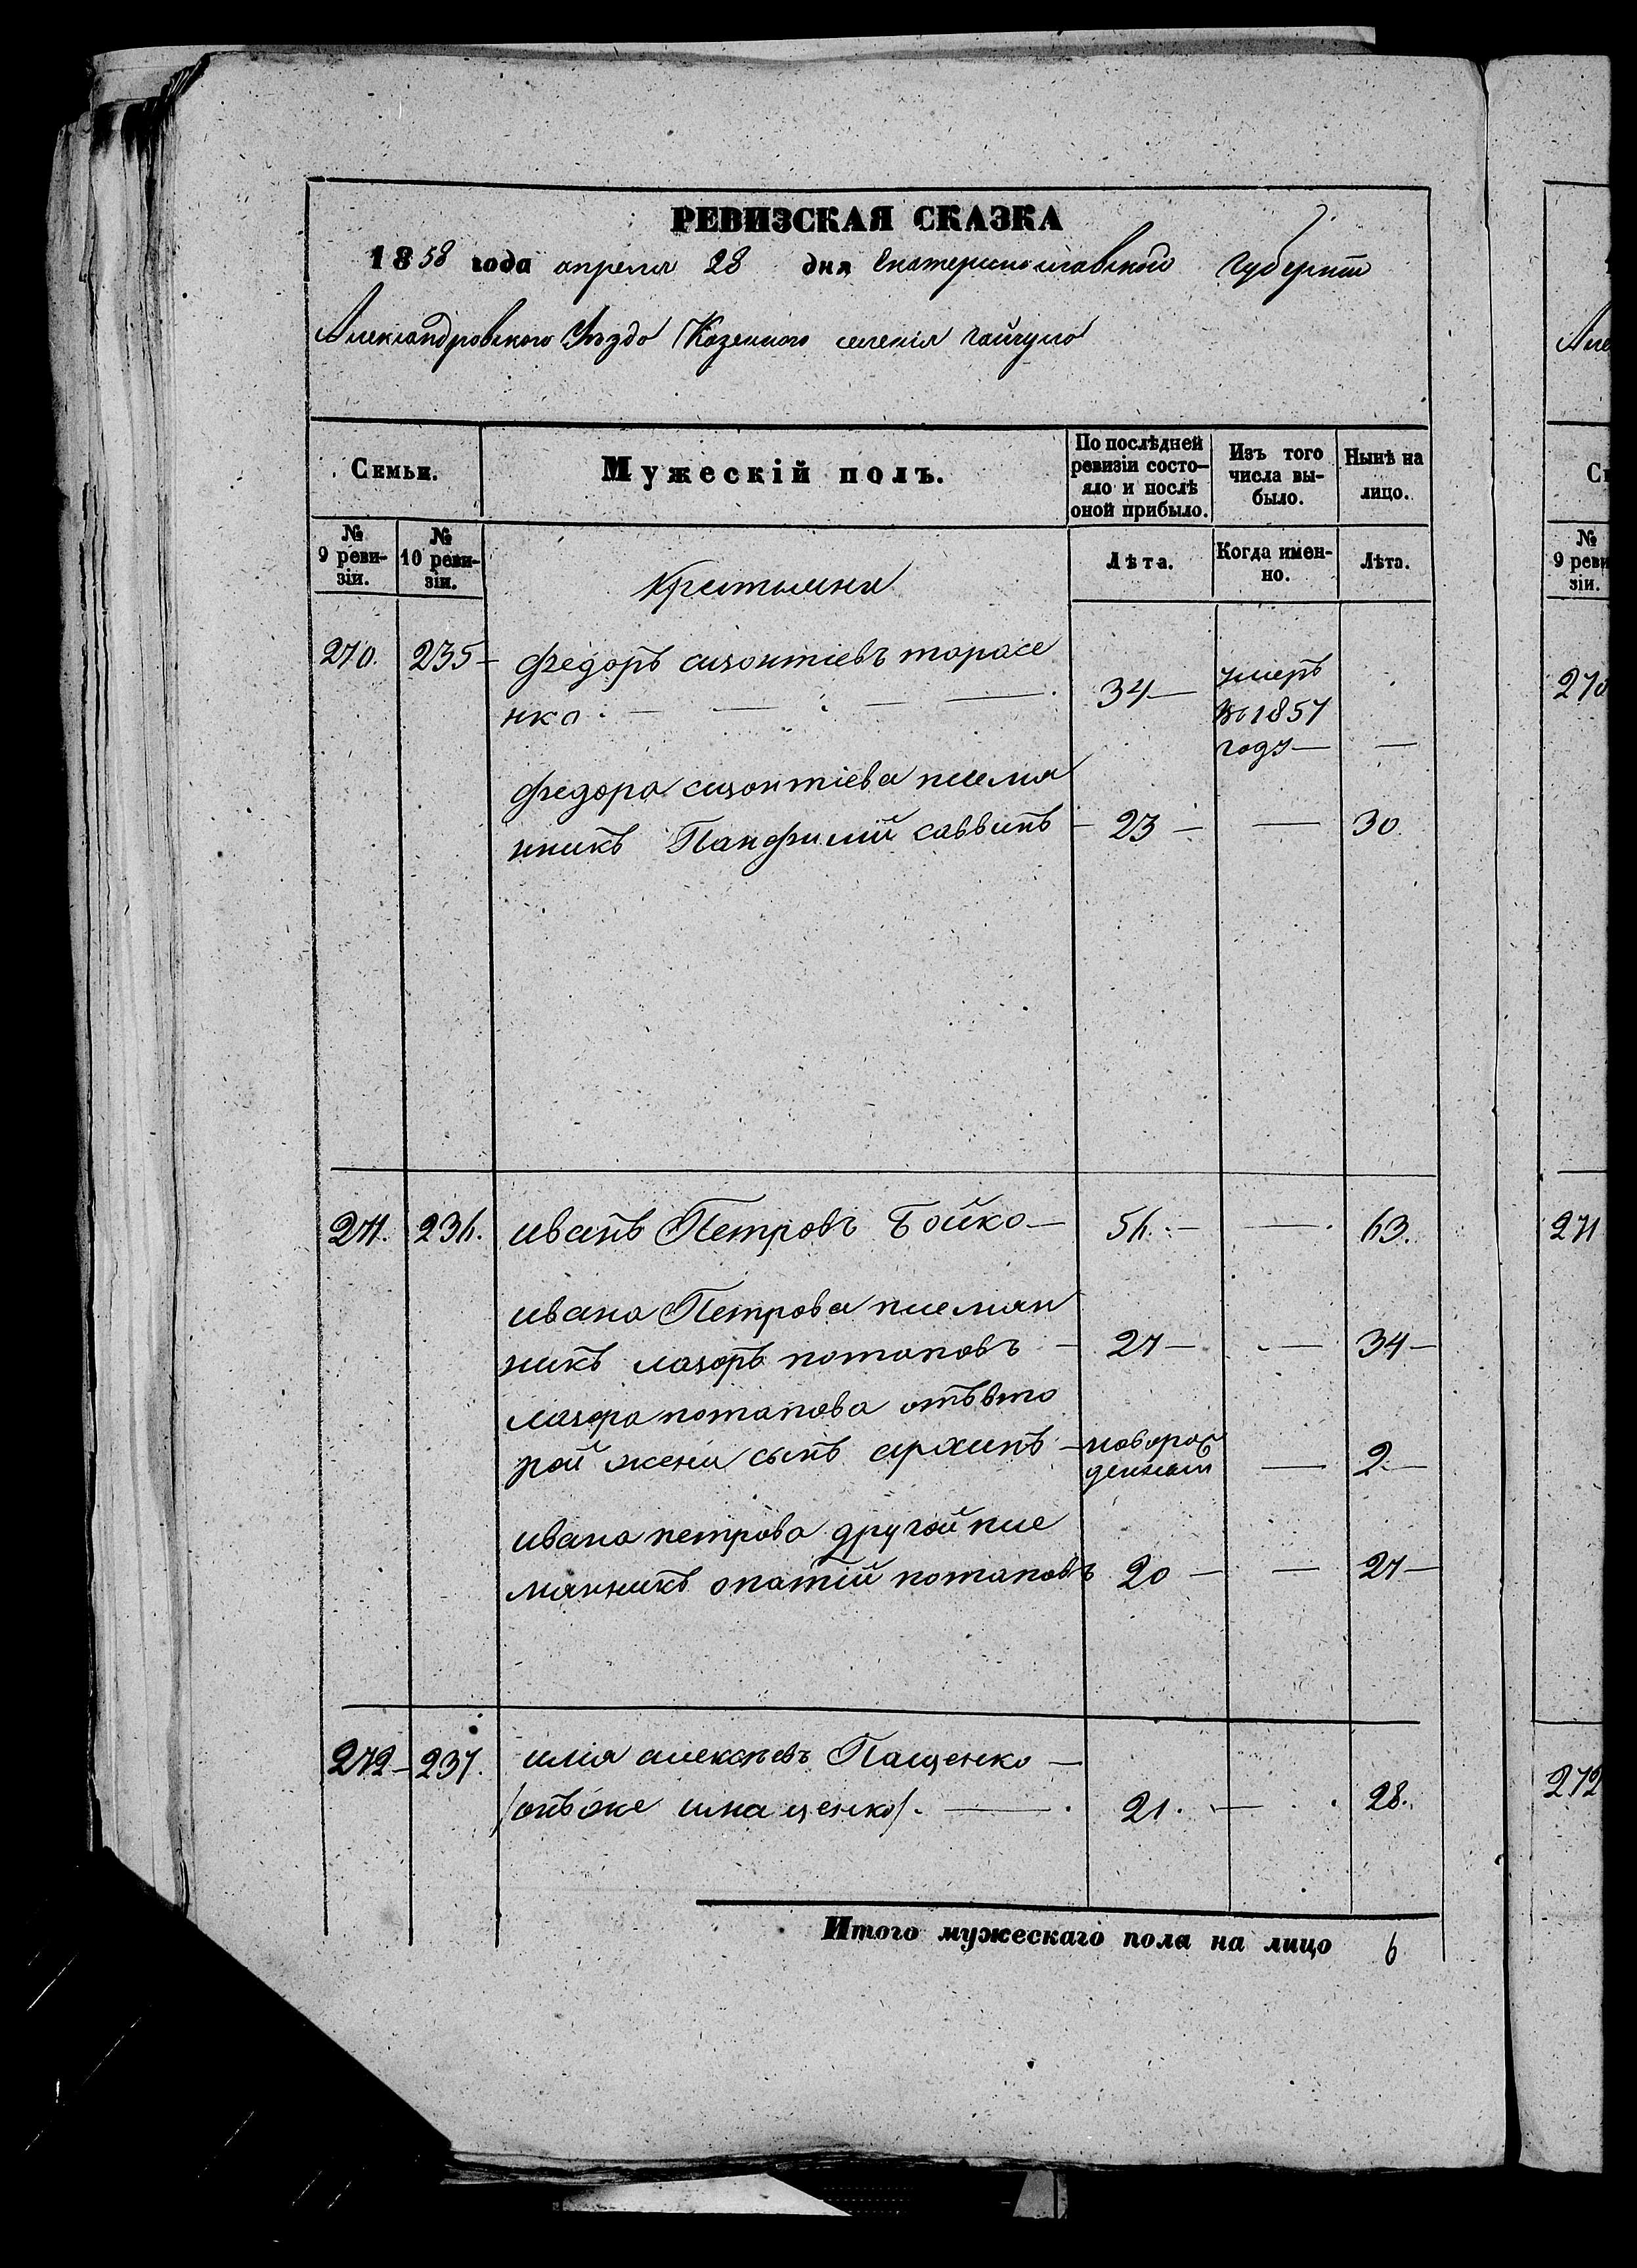 РЕВИЗСКАЯ СКАЗКА
1858 года апреля 28 дня Екатеринославской Губернии
Александровского Уезда Казенного селения гайчула
Семьи.
Мужескій полъ.
По послѣдней ревизіи состо-
яло и послѣ оной прибыло.
Изъ того числа вы-
было.
Нынѣ на лицо.
№ 9 реви-
зіи.
№ 10 реви-
зіи.
Лѣта.
Когда имен-
но.
Лѣта.
Крестьяни
270. 235 федоръ сизонтіевъ тарасе
нко 34 умеръ
въ 1857
году
федора сизонтіева племя
нникъ Панфилій саввинъ 23 30
271. 236. иванъ Петровъ Бойко 56. 63.
ивана Петрова племян
никъ лазоръ потаповъ 27 34
лазора потапова отъ вто
рой жени сынъ архипъ новорож
денный 2
ивана петрова другой пле
мянникъ опатій потаповъ 20 27
272 237. илія алексѣевъ Пащенко
/онъ же ищенко/. 21. 28.
Итого мужескаго пола на лицо 6
Але
Се
№ 9 реви
зіи.
270
271
272